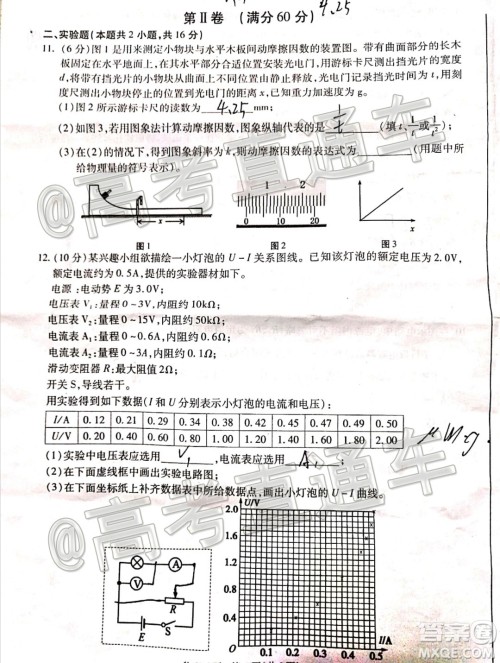 第Ⅱ卷 (满分60分) 4.25
二、实验题(本题共2小题,共16分)
11. (6分)图1是用来测定小物块与水平木板间动摩擦因数的装置图。带有曲面部分的长木
板固定在水平地面上,在其水平部分合适位置安装光电门,用游标卡尺测出挡光片的宽度
d,将带有挡光片的小物块从曲面上不同位置由静止释放,光电门记录挡光时间t,用刻
度尺测出小物块停止的位置到光电门的距离x,已知重力加速度为g。
(1)图2所示游标卡尺的读数为 4.25 mm;
(2)如图3,若用图象法计算动摩擦因数,图象纵轴代表的是 (填t,1/t或1/t²);
(3)在(2)的情况下,得到图象斜率为k,则动摩擦因数的表达式为 (用题中所
给物理量的符号表示)。
0 1 2
0 10 20
x
x
图1 图2 图3
12. (10分)某兴趣小组欲描绘一小灯泡的U-I关系图线。已知该灯泡的额定电压为2.0V,
额定电流约为0.5A,提供的实验器材如下。
电源:电动势E为3.0V;
电压表V₁:量程0~3V,内阻约10kΩ;
电压表V₂:量程0~15V,内阻约50kΩ;
电流表A₁:量程0~0.6A,内阻约0.5Ω;
电流表A₂:量程0~3A,内阻约0.1Ω;
滑动变阻器R:最大阻值2Ω;
开关S,导线若干。
用实验得到如下数据(I和U分别表示小灯泡的电流和电压):
I/A 0.12 0.21 0.29 0.34 0.38 0.42 0.45 0.47 0.49 0.50
U/V 0.20 0.40 0.60 0.80 1.00 1.20 1.40 1.60 1.80 2.00
μmg
(1)实验中电压表应选用 V₁ ,电流表应选用 A₁ ;
(2)在如下虚线框中画出实验电路图;
(3)在如下坐标纸上补齐数据表中所给数据点,画出小灯泡的U-I曲线。
U/V
2.0
1.6
1.2
0.8
0.4
0.1 0.2 0.3 0.4 0.5
I/A
A
V
R
E S
@高考直通车
@高考直通车
答案圈
MXQE.COM